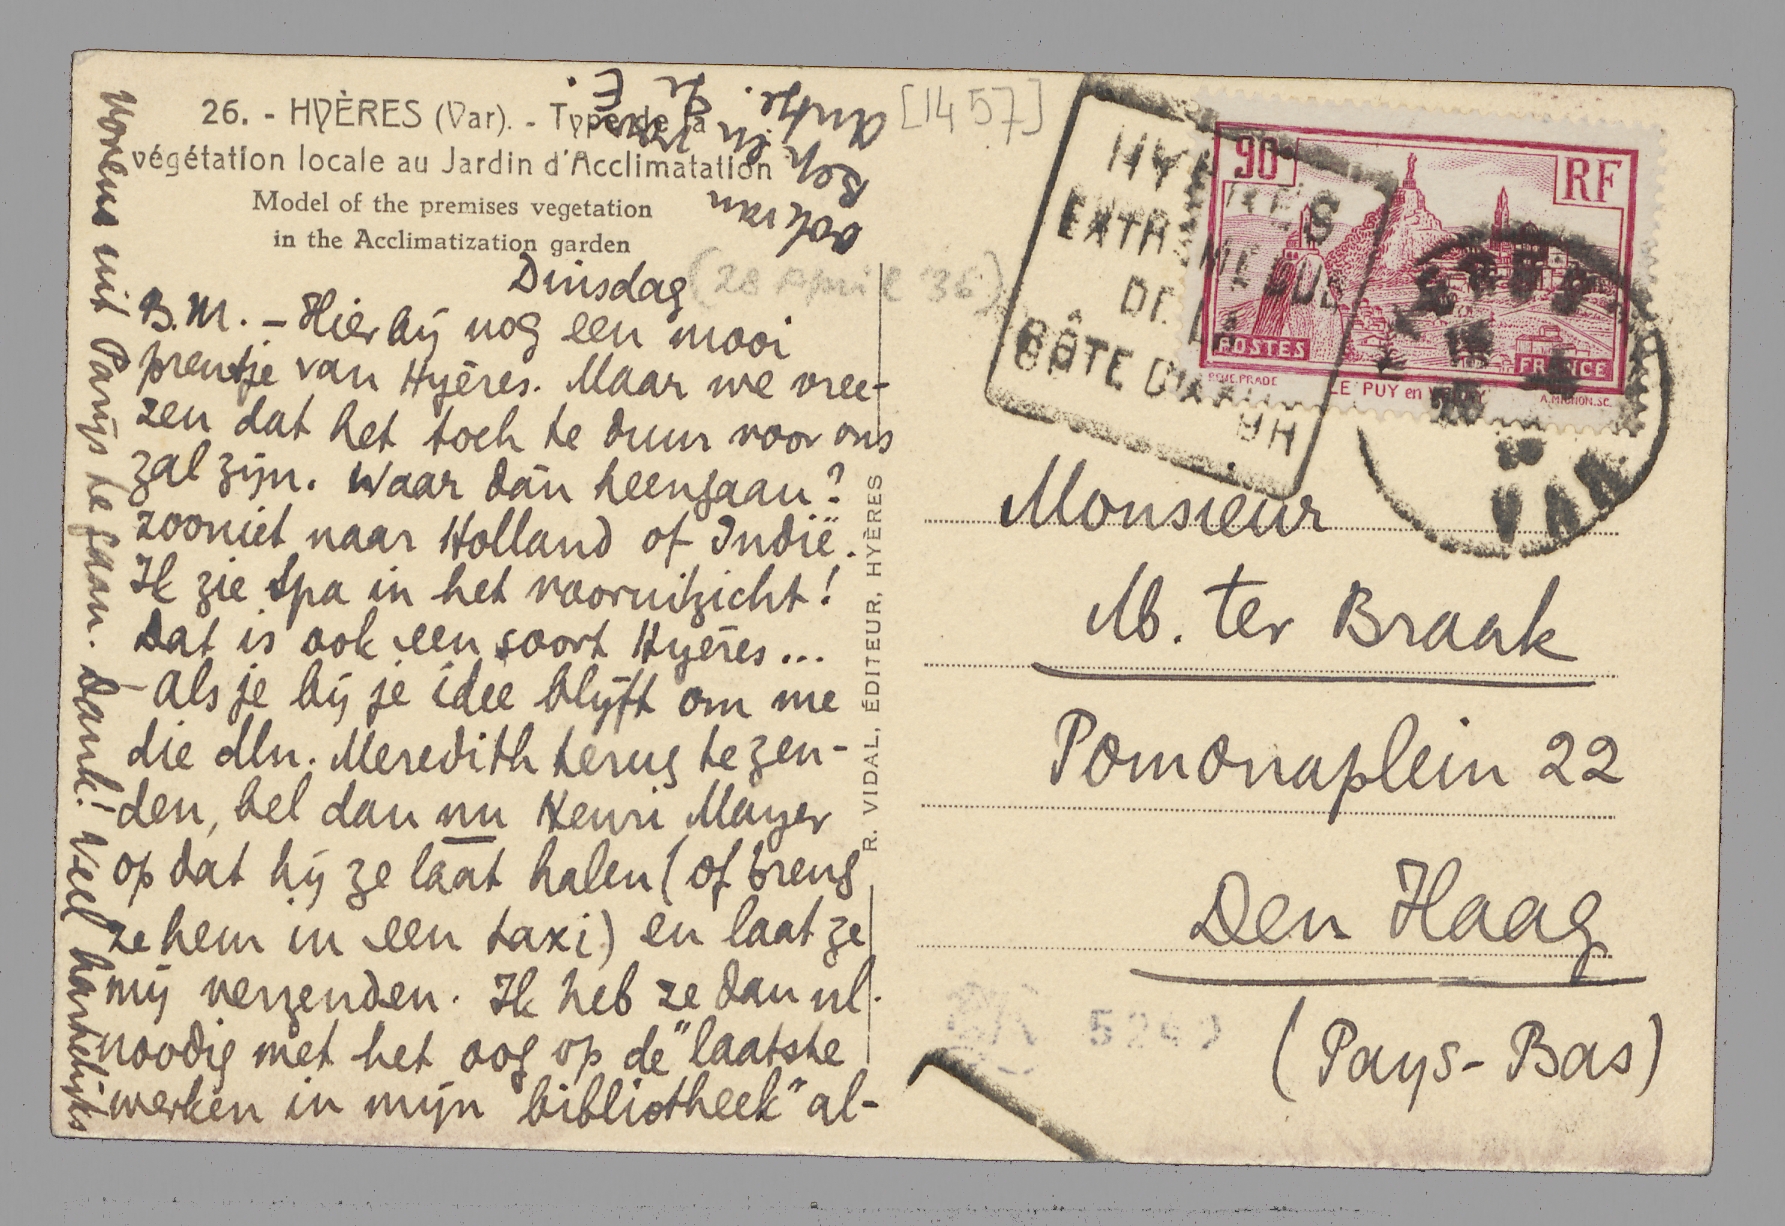 26. - HYÈRES (Var). - Type de la
végétation locale au Jardin d'Acclimatation
Model of the premises vegetation
in the Acclimatization garden
[1457]
Dinsdag (28 April '36)
B.M. - Hierbij nog een mooi
prentje van Hyères. Maar we vree-
zen dat het toch te duur voor ons
zal zijn. Waar dán heengaan?
zooniet naar Holland of Indië.
Ik zie Spa in het vooruitzicht!
Dat is ook een soort Hyères...
- Als je bij je idee blijft om me
die dln. Meredith terug te zen-
den, bel dan nu Henri Mayer
op dat hij ze láát halen (of breng
ze hem in een taxi) en laat ze
mij verzenden. Ik heb ze dan nl.
noodig met het oog op de "laatste
werken in mijn "bibliotheek" al-
vorens uit Parijs te gaan. Dank! Veel hartelijks
E.
R. VIDAL, ÉDITEUR, HYÈRES
HYÈRES
EXTREME SUD
DE LA
CÔTE D'AZUR
90
RF
POSTES
FRANCE
LE PUY en VELAY
HYERES
VAR
Monsieur
M. ter Braak
Pomonaplein 22
Den Haag
(Pays-Bas)